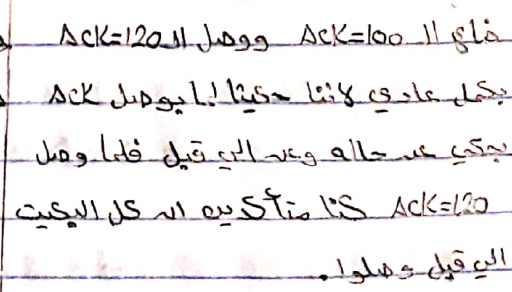 ضاع ال ACK=100 ووصل ال ACK=120
بكمل عادي لاننا حكينا لما يوصل ACK
بحكي عن حاله وعن الي قبل فلما وصل
ACK=120 كنا متأكدين انه كل البكيت
الي قبل وصلوا.